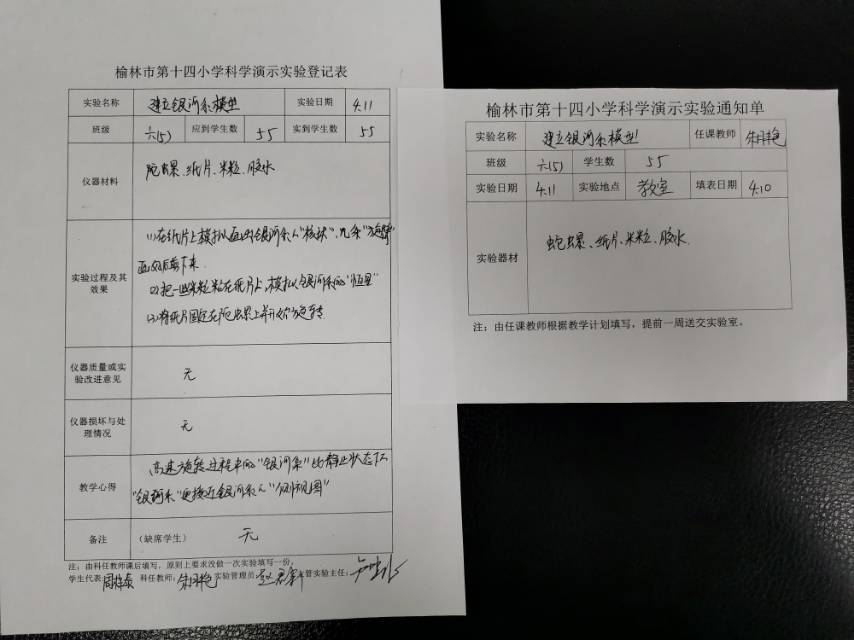 榆林市第十四小学科学演示实验登记表
实验名称 建立银河系模型 实验日期 4.11
班级 六(5) 应到学生数 55 实到学生数 55
仪器材料 陀螺、纸片、米粒、胶水
实验过程及其效果
(1)在纸片上模拟画出银河系"核球",几条"旋臂"
画好后剪下来.
(2)把一些米粒粘在纸片上,模拟银河系的"恒星"
(3)将纸片固定在陀螺上并开始旋转
仪器质量或实验改进意见 无
仪器损坏与处理情况 无
教学心得
高速旋转过程中的"银河系"比静止状态下
"银河系"更接近银河系"侧视图"
备注 (缺席学生) 无
注:由科任教师课后填写,原则上要求没做一次实验填写一份。
学生代表: 科任教师: 实验管理员: 主管实验主任:
榆林市第十四小学科学演示实验通知单
实验名称 建立银河系模型 任课教师
班级 六(5) 学生数 55
实验日期 4.11 实验地点 教室 填表日期 4.10
实验器材 陀螺、纸片、米粒、胶水
注:由任课教师根据教学计划填写,提前一周送交实验室。